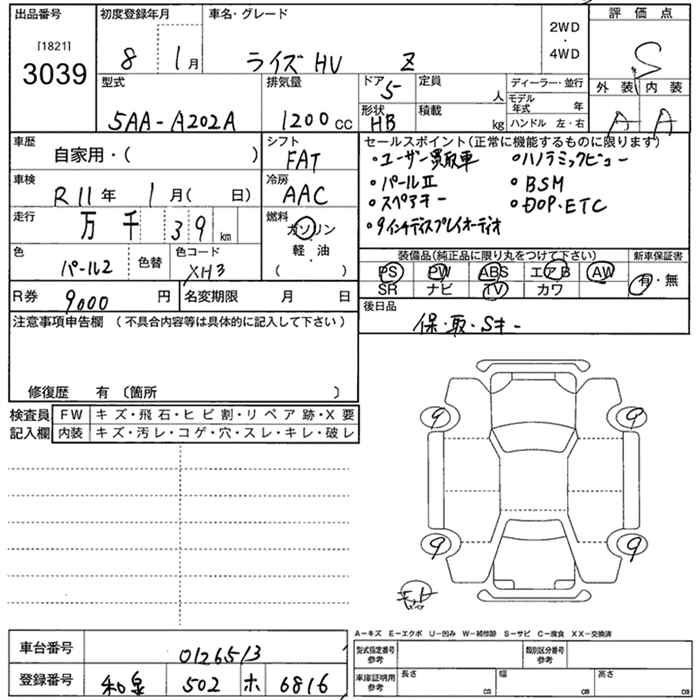 出品番号 初度登録年月 車名・グレード 評価点
[1821]
3039 8 1月 ライズHV Z 2WD・4WD S
外装 内装
A A
型式 排気量 ドア 定員 ディーラー・並行
5AA-A202A 1200 CC 5 人 モデル年式 年
形状 積載 ハンドル 左・右
HB kg
車歴 自家用・( ) シフト FAT
セールスポイント(正常に機能するものに限ります)
・ユーザー買取車 ・パノラミックビュー
・パールⅡ ・BSM
・スペアキー ・DOP.ETC
・9インチディスプレイオーディオ
車検 R11年 1月( 日) 冷房 AAC
走行 万 千 39 km 燃料 ガソリン・軽・油 ( )
色 パール2 色替 色コード XH3
装備品(純正品に限り丸をつけて下さい) 新車保証書
PS PW ABS エアB AW 有・無
SR ナビ TV カワ
R券 9000 円 名変期限 月 日
後日品
保・取・Sキー
注意事項申告欄 (不具合内容等は具体的に記入して下さい)
修復歴 有 〔箇所 〕
検査員記入欄 FW キズ・飛石・ヒビ割・リペア跡・X要
内装 キズ・汚レ・コゲ・穴・スレ・キレ・破レ
9 9
9 9
A-キズ E-エクボ U-凹み W-補修跡 S-サビ C-腐食 XX-交換済
車台番号 0126513
型式指定番号参考 類別区分番号参考
登録番号 和泉 502 ホ 6816
車庫証明用参考 長さ cm 幅 cm 高さ cm